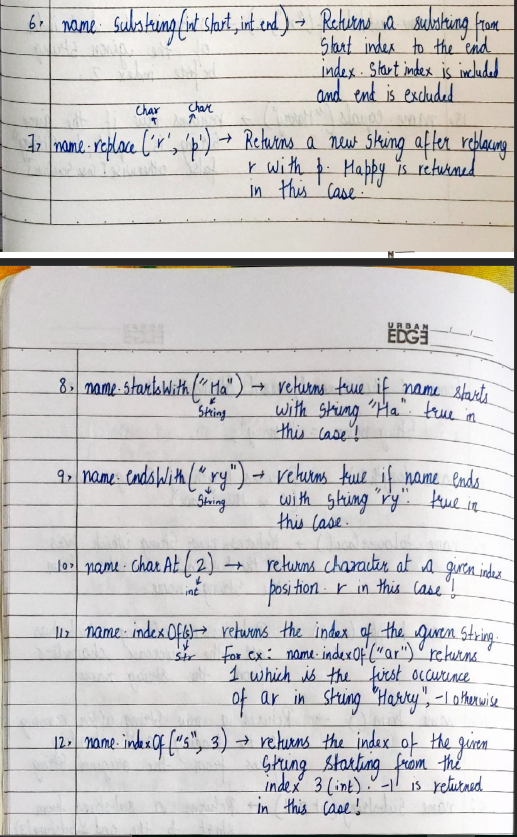 6> name. substring(int start, int end) → Returns a substring from
start index to the end
index. Start index is included
and end is excluded
char char
7> name. replace ('r', 'p') → Returns a new string after replacing
r with p. Happy is returned
in this case.
URBAN
EDGE
8> name. startsWith ("Ha") → returns true if name starts
String with string "Ha". true in
this case!
9> name. endsWith ("ry") → returns true if name ends
String with string "ry". true in
this case.
10> name. charAt (2) → returns character at a given index
int position. r in this case!
11> name. indexOf(s) → returns the index of the given string.
str For ex: name.indexOf("ar") returns
1 which is the first occurence
of ar in string "Harry", -1 otherwise
12> name. indexOf ("s", 3) → returns the index of the given
string starting from the
index 3 (int). -1 is returned
in this case!